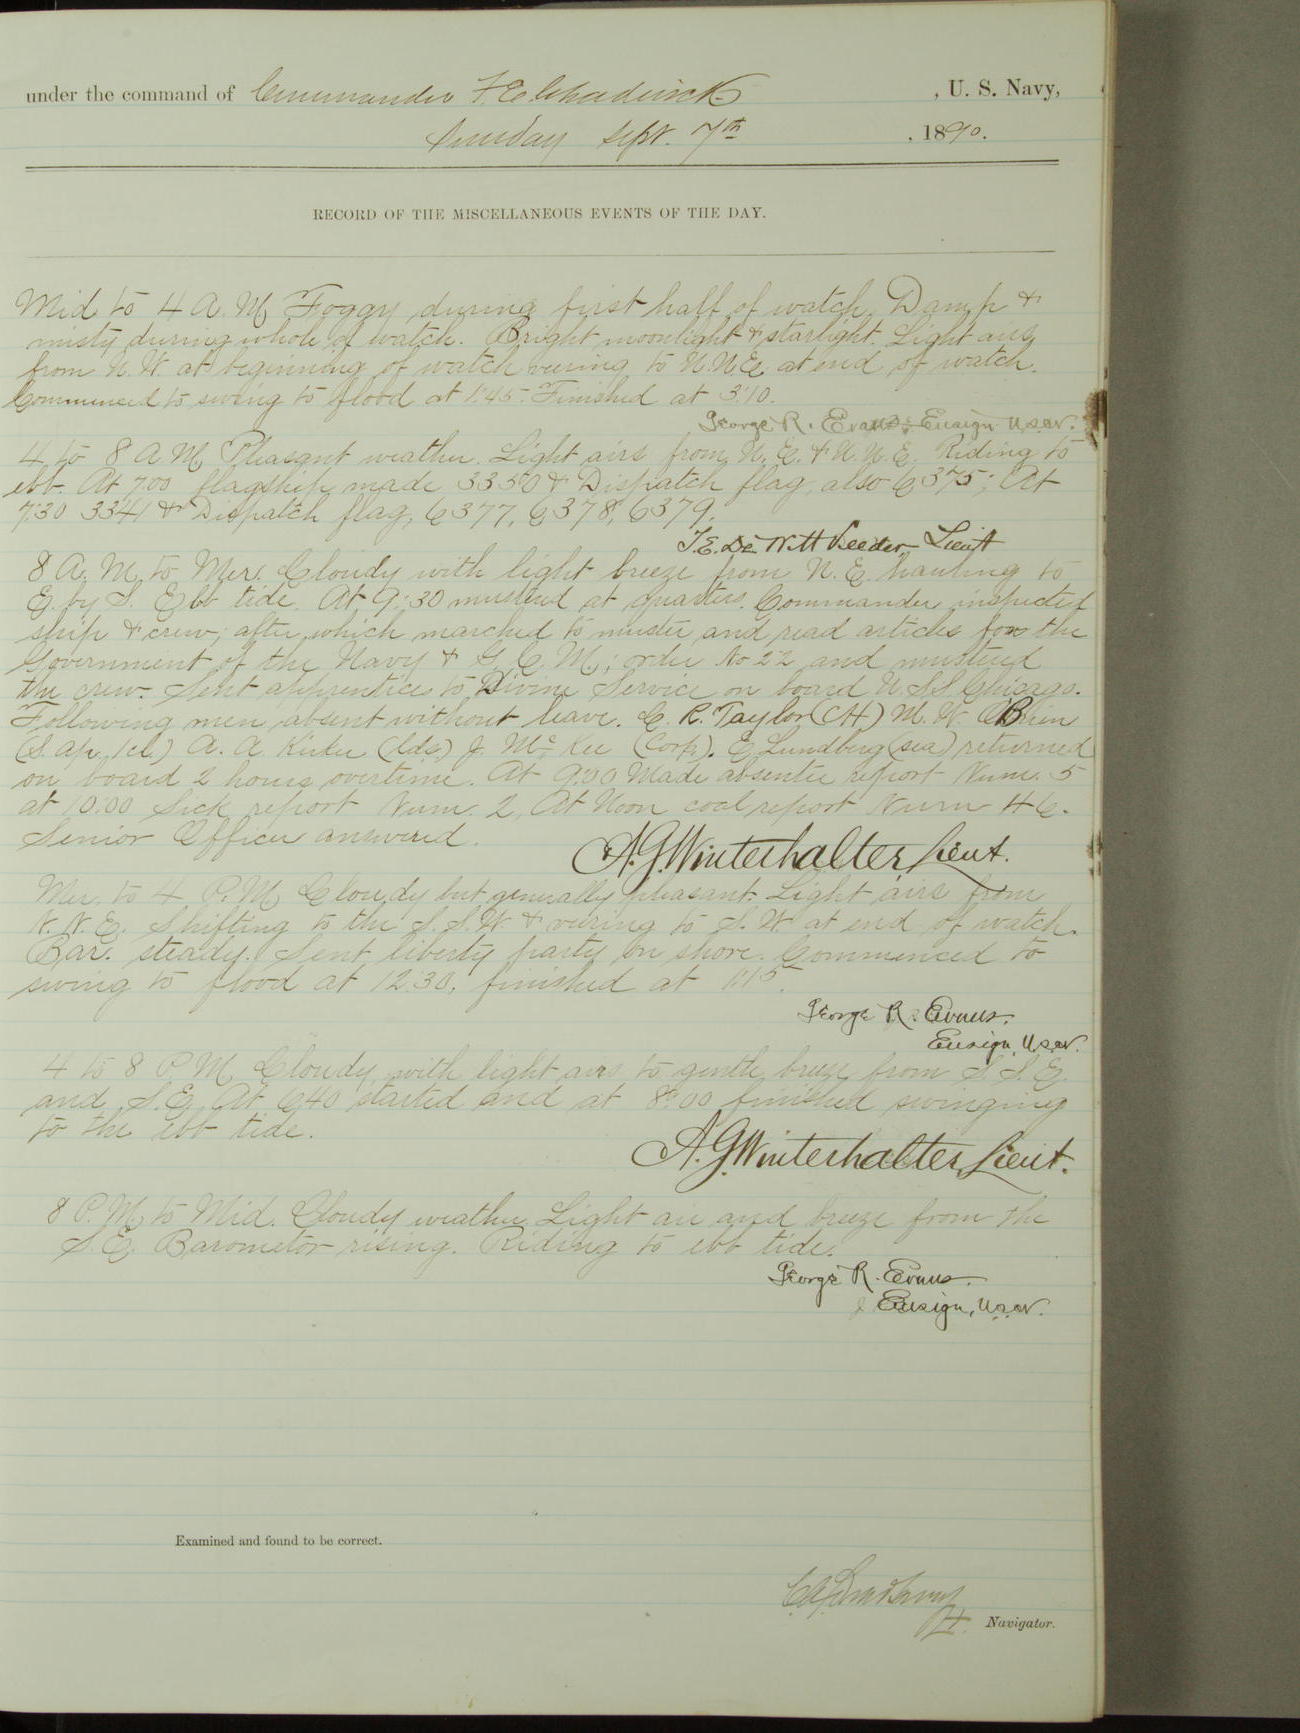 under the command of Commander F. E. Chadwick , U. S. Navy,
Sunday Sept. 7th , 1890.
RECORD OF THE MISCELLANEOUS EVENTS OF THE DAY.
Mid to 4 A. M. Foggy during first half of watch. Damp &
misty during whole of watch. Bright moonlight & starlight. Light airs
from N. W. at beginning of watch veering to N.N.E. at end of watch.
Commenced to swing to flood at 1:45. Finished at 3:10.
George R. Evans, Ensign U.S.N.
4 to 8 A. M. Pleasant weather. Light airs from N. E. & N. N. E. Riding to
ebb. At 7.00 flagship made 3350 & Dispatch flag, also 6375; At
7:30 3341 & Dispatch flag, 6377, 6378, 6379.
T. E. De Witt Veeder Lieut
8 A. M. to Mer. Cloudy with light breeze from N. E. hauling to
E. by S. Ebb tide. At 9:30 mustered at quarters. Commander inspected
ship & crew; after which marched to muster and read articles for the
Government of the Navy & G. C. M. order No 22 and mustered
the crew. Sent apprentices to Divine Service on board U.S.S Chicago.
Following men absent without leave. C. R. Taylor (CH) M. W. O'Brien
(S. ap. 1cl.) A. A. (lds) J. McKee (Corp). E. Lundberg (sea) returned
on board 2 hours overtime. At 9:00 Made absentee report Num. 5
at 10.00 Sick report Num. 2, At Noon coal report Num 46.
Senior Officer answered.
A. G. Winterhalter Lieut.
Mer. to 4 P. M. Cloudy but generally pleasant. Light airs from
N. N. E. Shifting to the S. S. W. & veering to S. W. at end of watch.
Bar. steady. Sent liberty party on shore. Commenced to
swing to flood at 12.30, finished at 1:15.
George R. Evans.
Ensign, U.S.N.
4 to 8 P. M. Cloudy, with light airs to gentle breeze from S. S. E.
and S. E. At 6.40 started and at 8:00 finished swinging
to the ebb tide.
A. G. Winterhalter, Lieut.
8 P. M. to Mid. Cloudy weather. Light air and breeze from the
S. E. Barometer rising. Riding to ebb tide.
George R. Evans.
Ensign, U.S.N.
Examined and found to be correct.
Navigator.